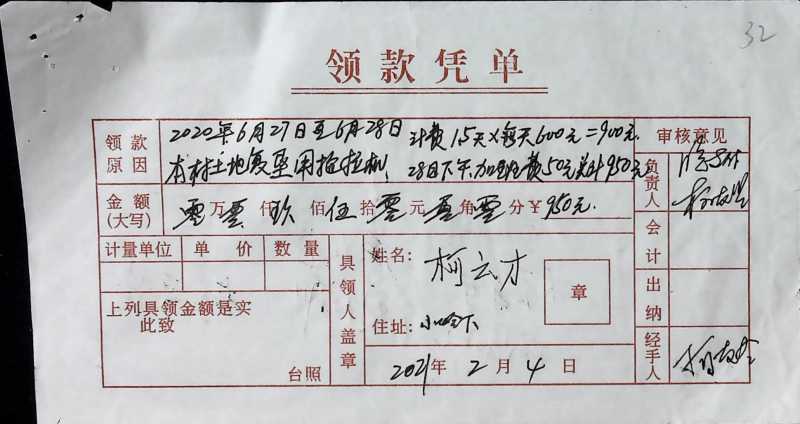 32
领款凭单
领款原因 2020年6月27日至6月28日 计费1.5天×每天600元=900元.
本村土地复垦用拖拉机, 28日下午加班费50元共计950元
审核意见
负责人
金额(大写) 零万零仟玖佰伍拾零元零角零分¥950元.
会计
计量单位 单价 数量
具领人盖章
姓名: 柯云才
章
出纳
上列具领金额是实
此致
台照
住址:
经手人
2021年2月4日